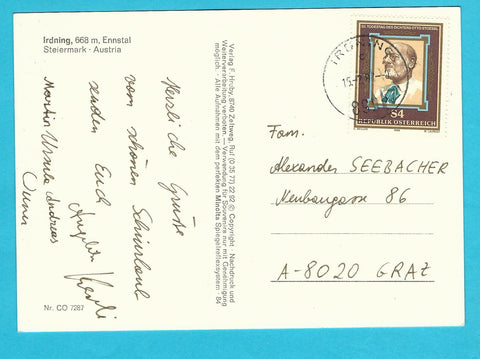 Irdning, 668 m, Ennstal
Steiermark · Austria
Herzliche Grüße
vom schönen Schiurlaub
senden Euch
Angelika
Martin Ursula Andreas
Nr. CO 7287
Verlag F. Hruby, 8740 Zeltweg, Ruf (0 35 77) 22 92 © Copyright · Nachdruck und
Weiterverarbeitung verboten — Verwendung für Souvenire nur mit Genehmigung
möglich · Alle Aufnahmen mit dem perfekten Minolta Spiegelreflexsystem · 84
IRDNING
S4
REPUBLIK ÖSTERREICH
Fam.
Alexander SEEBACHER
Neubaugasse 86
A-8020 GRAZ